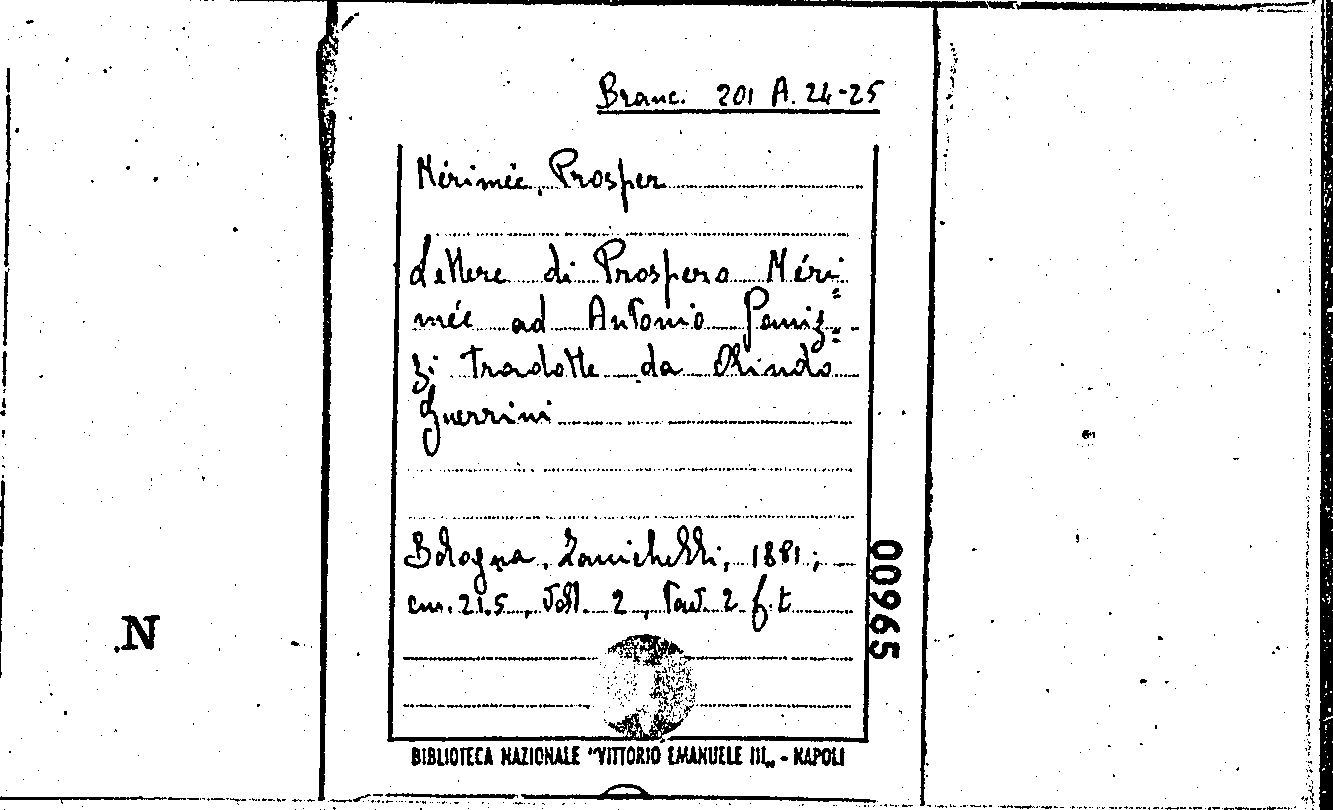 Branc. 201 A. 24-25
Mérimée, Prosper
Lettere di Prospero Méri=
mée ad Antonio Paniz=
zi tradotte da Olindo
Guerrini
Bologna, Zanichelli, 1881;
cm. 21.5, Voll. 2, Tav. 2 f.t
00965
.N
BIBLIOTECA NAZIONALE "VITTORIO EMANUELE III„ - NAPOLI